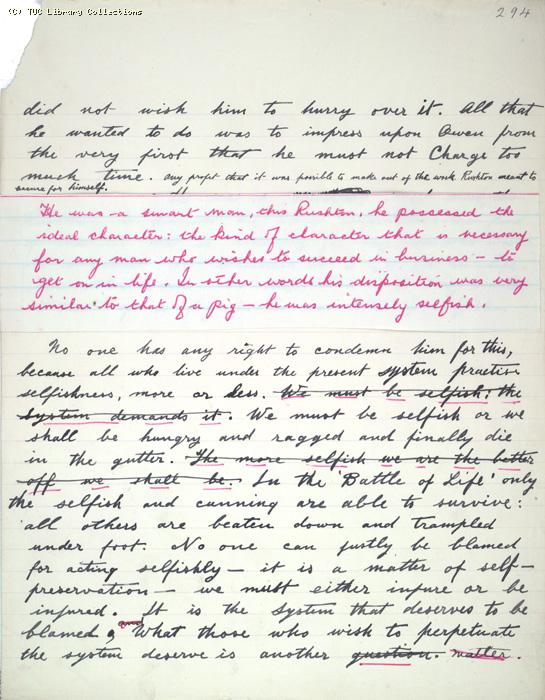 (C) TUC Library Collections
294
did not wish him to hurry over it. All that
he wanted to do was to impress upon Owen from
the very first that he must not Charge too
much time. Any profit that it was possible to make out of the work Rushton meant to
secure for himself.
He was a smart man, this Rushton, he possessed the
ideal character: the kind of character that is necessary
for any man who wishes to succeed in business – to
get on in life. In other words his disposition was very
similar to that of a pig – he was intensely selfish.
No one has any right to condemn him for this,
because all who live under the present system practise
selfishness, more or less. We must be selfish: the
System demands it. We must be selfish or we
shall be hungry and ragged and finally die
in the gutter. The more selfish we are the better
off we shall be. In the 'Battle of Life' only
the selfish and cunning are able to survive:
all others are beaten down and trampled
under foot. No one can justly be blamed
for acting selfishly – it is a matter of self-
preservation – we must either injure or be
injured. It is the system that deserves to be
blamed. What those who wish to perpetuate
the system deserve is another question. matter.